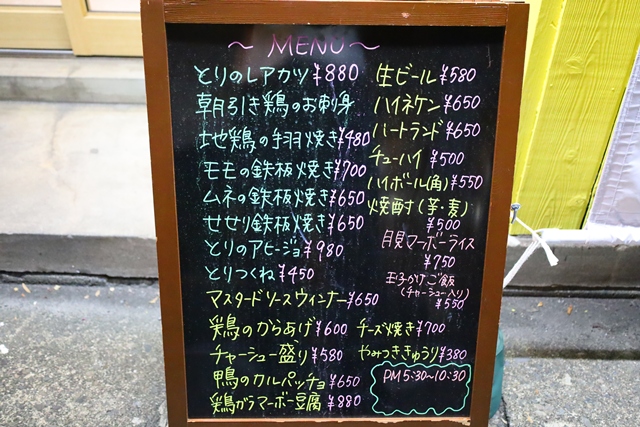 ～ MENU ～
とりのレアカツ ¥880
朝引き鶏のお刺身
地鶏の手羽焼き ¥480
モモの鉄板焼き ¥700
ムネの鉄板焼き ¥650
せせり鉄板焼き ¥650
とりのアヒージョ ¥980
とりつくね ¥450
マスタードソースウィンナー ¥650
鶏のからあげ ¥600
チャーシュー盛り ¥580
鴨のカルパッチョ ¥650
鶏ガラマーボー豆腐 ¥880
生ビール ¥580
ハイネケン ¥650
ハートランド ¥650
チューハイ ¥500
ハイボール(角) ¥550
焼酎(芋・麦)
¥500
月見マーボーライス
¥750
玉子かけご飯
(チャーシュー入り)
¥550
チーズ焼き ¥700
やみつききゅうり ¥380
PM 5:30～10:30